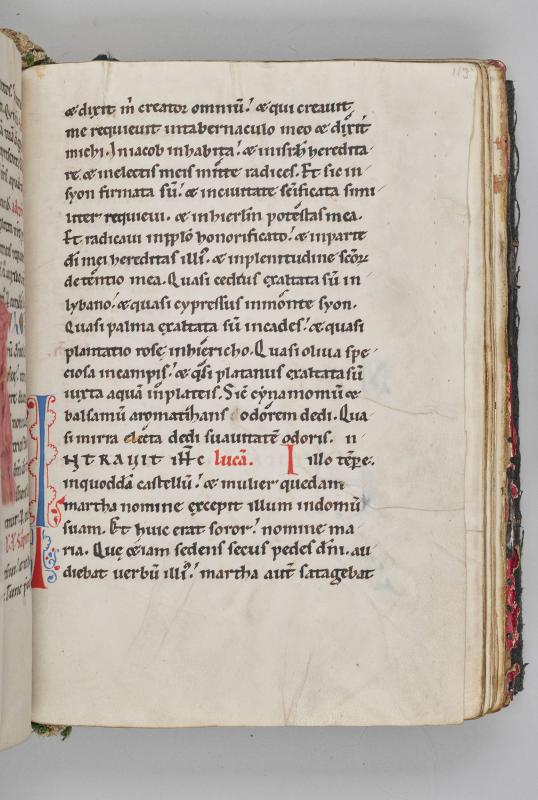 113
& dixit m̄ creator omniū! & qui creauit
me requieuit in tabernaculo meo & dixit
michi. In iacob inhabita! & in isrł heredita
re. & in electis meis mitte radices. Et sic in
syon firmata sū! & in ciuitate scīficata simi
liter requieui. & in hierłm potestas mea.
Et radicaui in pplo honorificato! & in parte
dī mei hereditas illi᾽! & in plenitudine scōꝝ
detentio mea. Quasi cedrus exaltata sū in
lybano! & quasi cypressus in monte syon.
Quasi palma exaltata sū in cades! & quasi
plantatio rosę in hiericho. Quasi oliua spe
ciosa in campis! & qͣsi platanus exaltata sū
iuxta aquā in plateis. Sic̄ cynamomū &
balsamū aromatizans odorem dedi. Qua
si mirra electa dedi suauitatē odoris. II
NTRAUIT IHC lucā. I illo tēpre.
in quoddā castellū! & mulier quedam
martha nomine excepit illum in domū
suam. Et huic erat soror! nomine ma
ria. Quę etiam sedens secus pedes dn̄i. au
diebat uerbū illi᾽! martha aut̄ satagebat